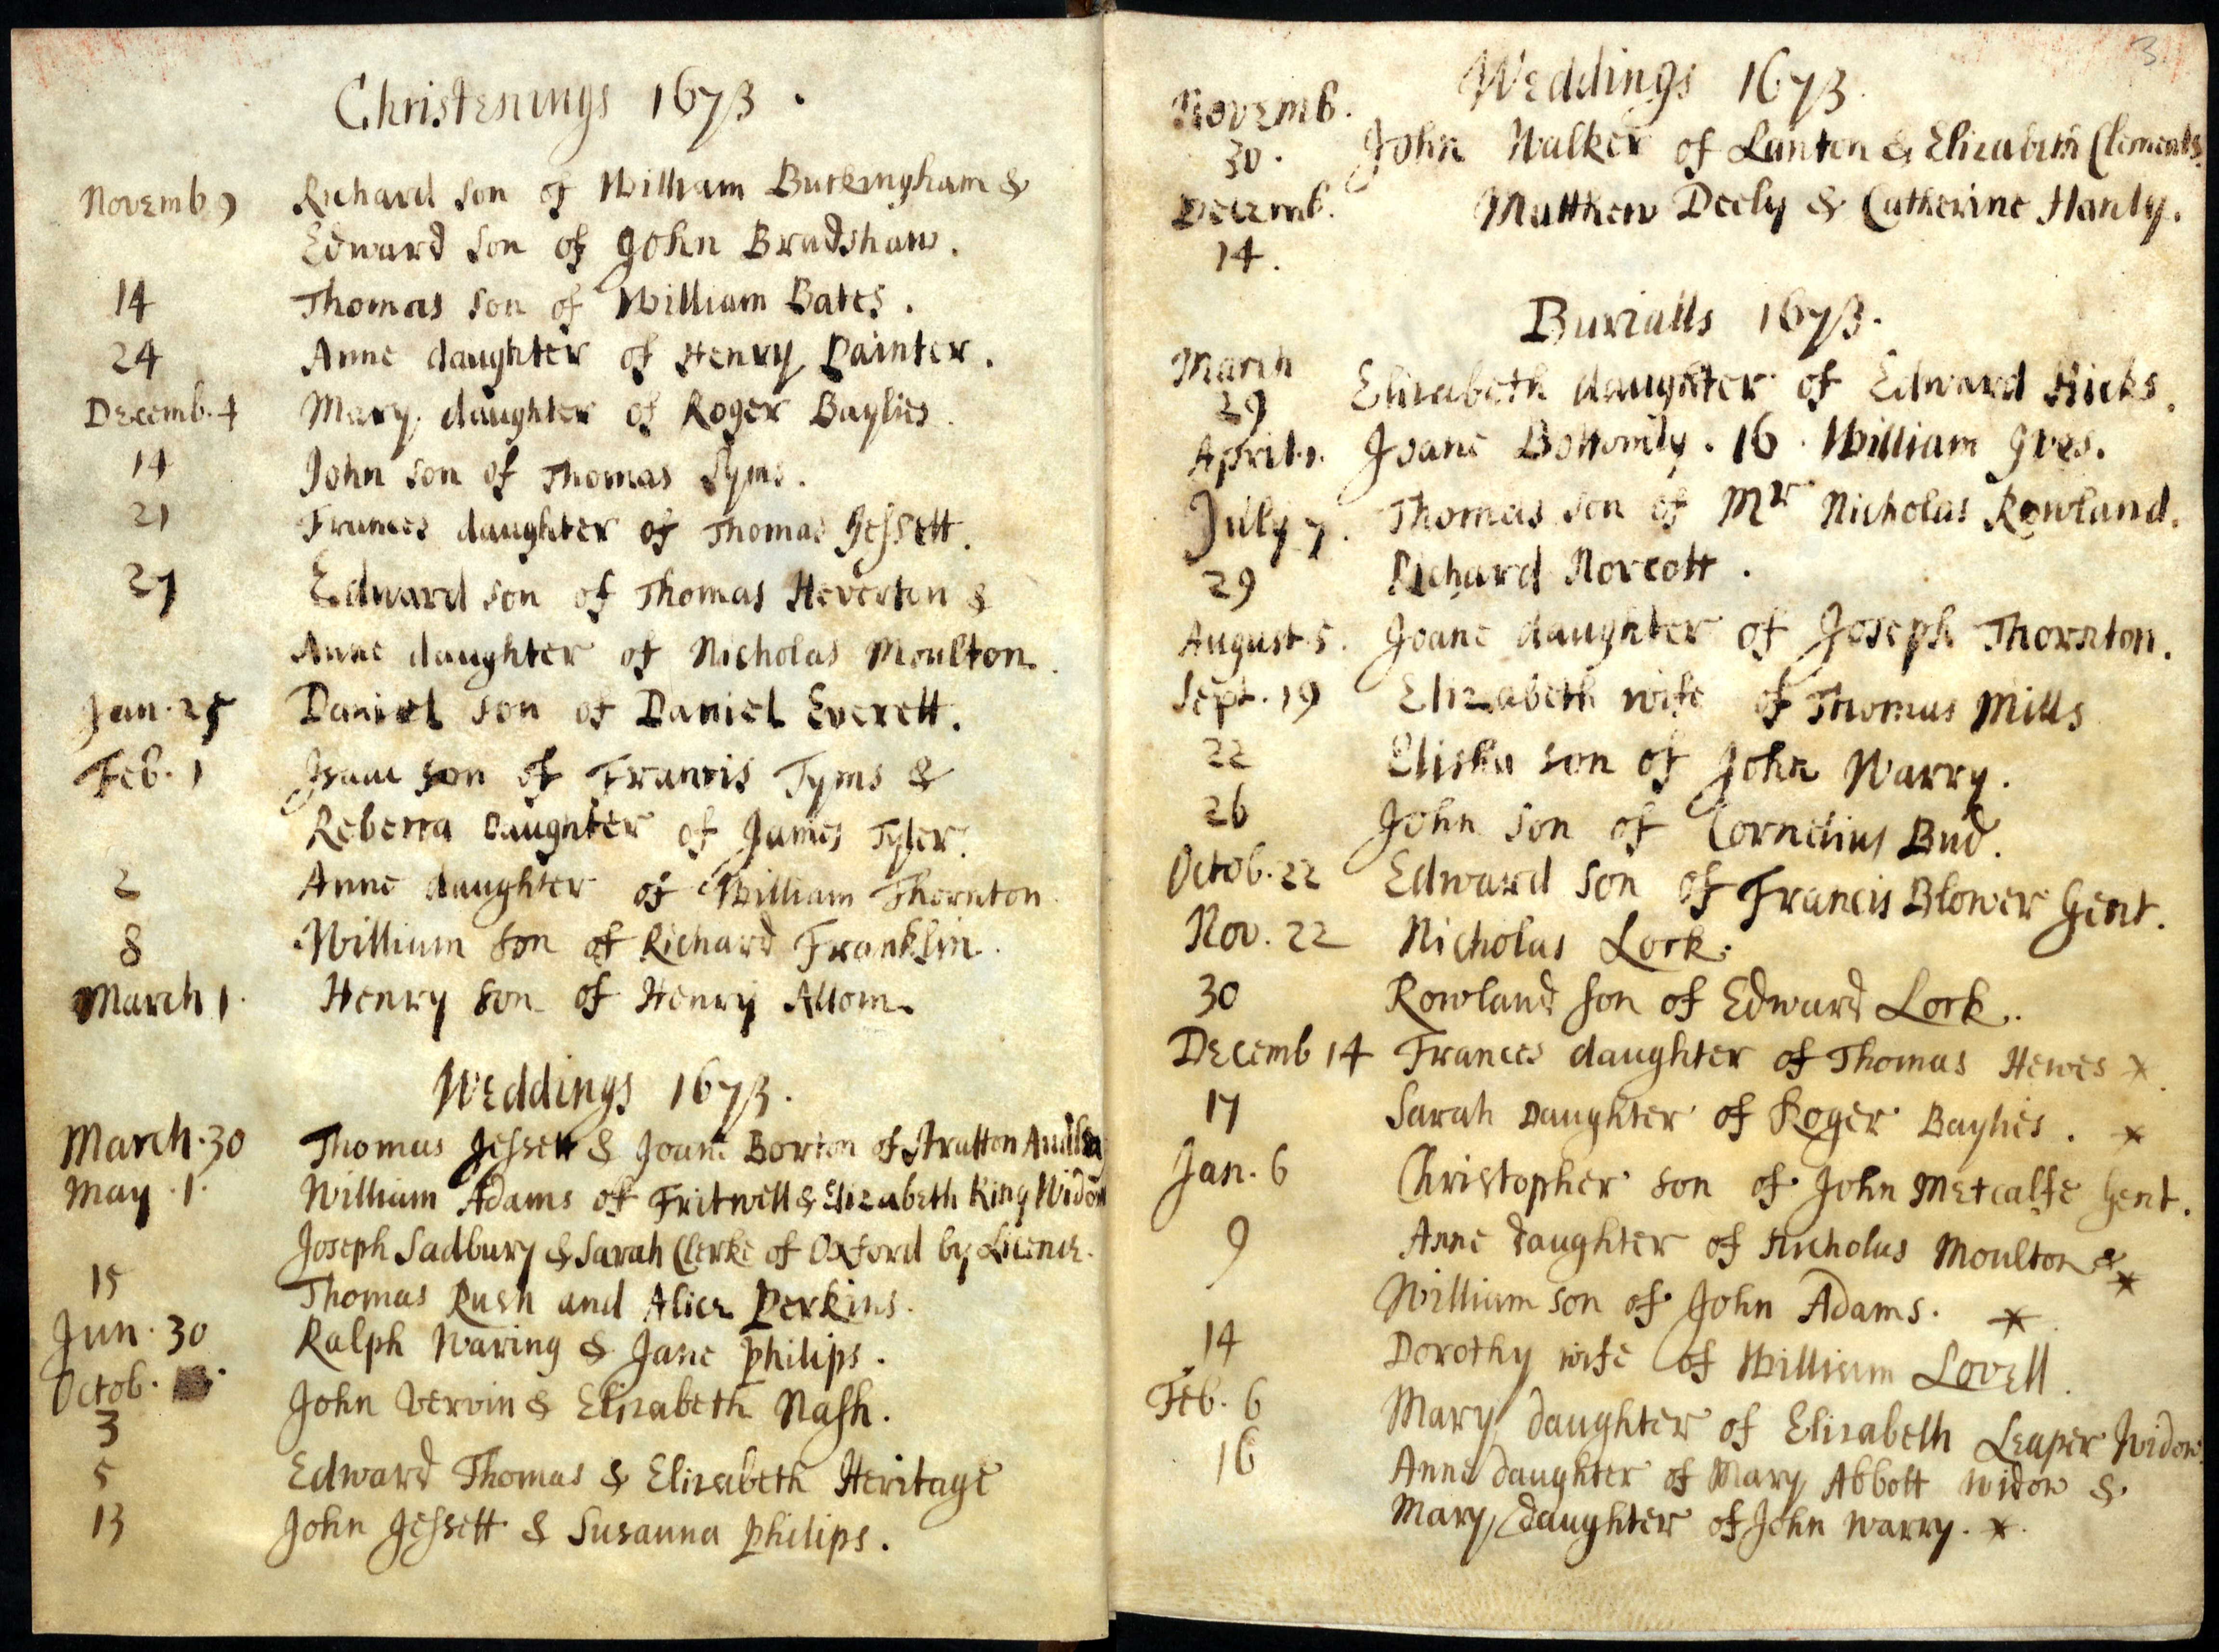 Christenings 1673.
Novemb 9 Richard son of William Buckingham &
Edward son of John Bradshaw.
14 Thomas son of William Bates.
24 Anne daughter of Henry Painter.
Decemb. 4 Mary daughter of Roger Baylies.
14 John son of Thomas Syms.
21 Frances daughter of Thomas Jessett.
27 Edward son of Thomas Heverton &
Anne daughter of Nicholas Moulton.
Jan. 25 Daniel son of Daniel Everett.
Feb. 1 Isaac son of Francis Tyms &
Rebecca Daughter of James Tyler.
2 Anne daughter of William Thornton
8 William son of Richard Franklin.
March 1. Henry son of Henry Allom.
Weddings 1673.
March. 30 Thomas Jessett & Joane Borton of Stratton Audley
May. 1. William Adams of Fritwell & Elizabeth King Widow
Joseph Sadbury & Sarah Clerke of Oxford by Licence.
15 Thomas Rush and Alice Perkins.
Jun. 30 Ralph Waring & Jane Philips.
Octob.
3 John Vervin & Elizabeth Nash.
5 Edward Thomas & Elizabeth Heritage
13 John Jessett & Susanna Philips.
3
Weddings 1673.
Novemb.
30. John Walker of Lanton & Elizabeth Clements.
Decemb. Matthew Deely & Catherine Hanly.
14.
Burialls 1673.
March
29 Elizabeth daughter of Edward Hicks.
April. 1. Joane Bottomly. 16. William Ives.
July 7. Thomas son of Mr Nicholas Rowland.
29 Richard Norcott.
August. 5. Joane daughter of Joseph Thornton.
Sept. 19 Elizabeth wife of Thomas Mills
22 Elisha son of John Warry.
26 John son of Cornelius Bud.
Octob. 22 Edward son of Francis Blower Gent.
Nov. 22 Nicholas Lock.
30 Rowland son of Edward Lock.
Decemb 14 Frances daughter of Thomas Hewes *
17 Sarah Daughter of Roger Baylies. *
Jan. 6 Christopher son of John Metcalfe Gent.
9 Anne daughter of Nicholas Moulton & *
William son of John Adams. *
14 Dorothy wife of William Lovell.
Feb. 6 Mary daughter of Elizabeth Leaper Widow.
16 Anne daughter of Mary Abbott widow &
Mary daughter of John Warry. *